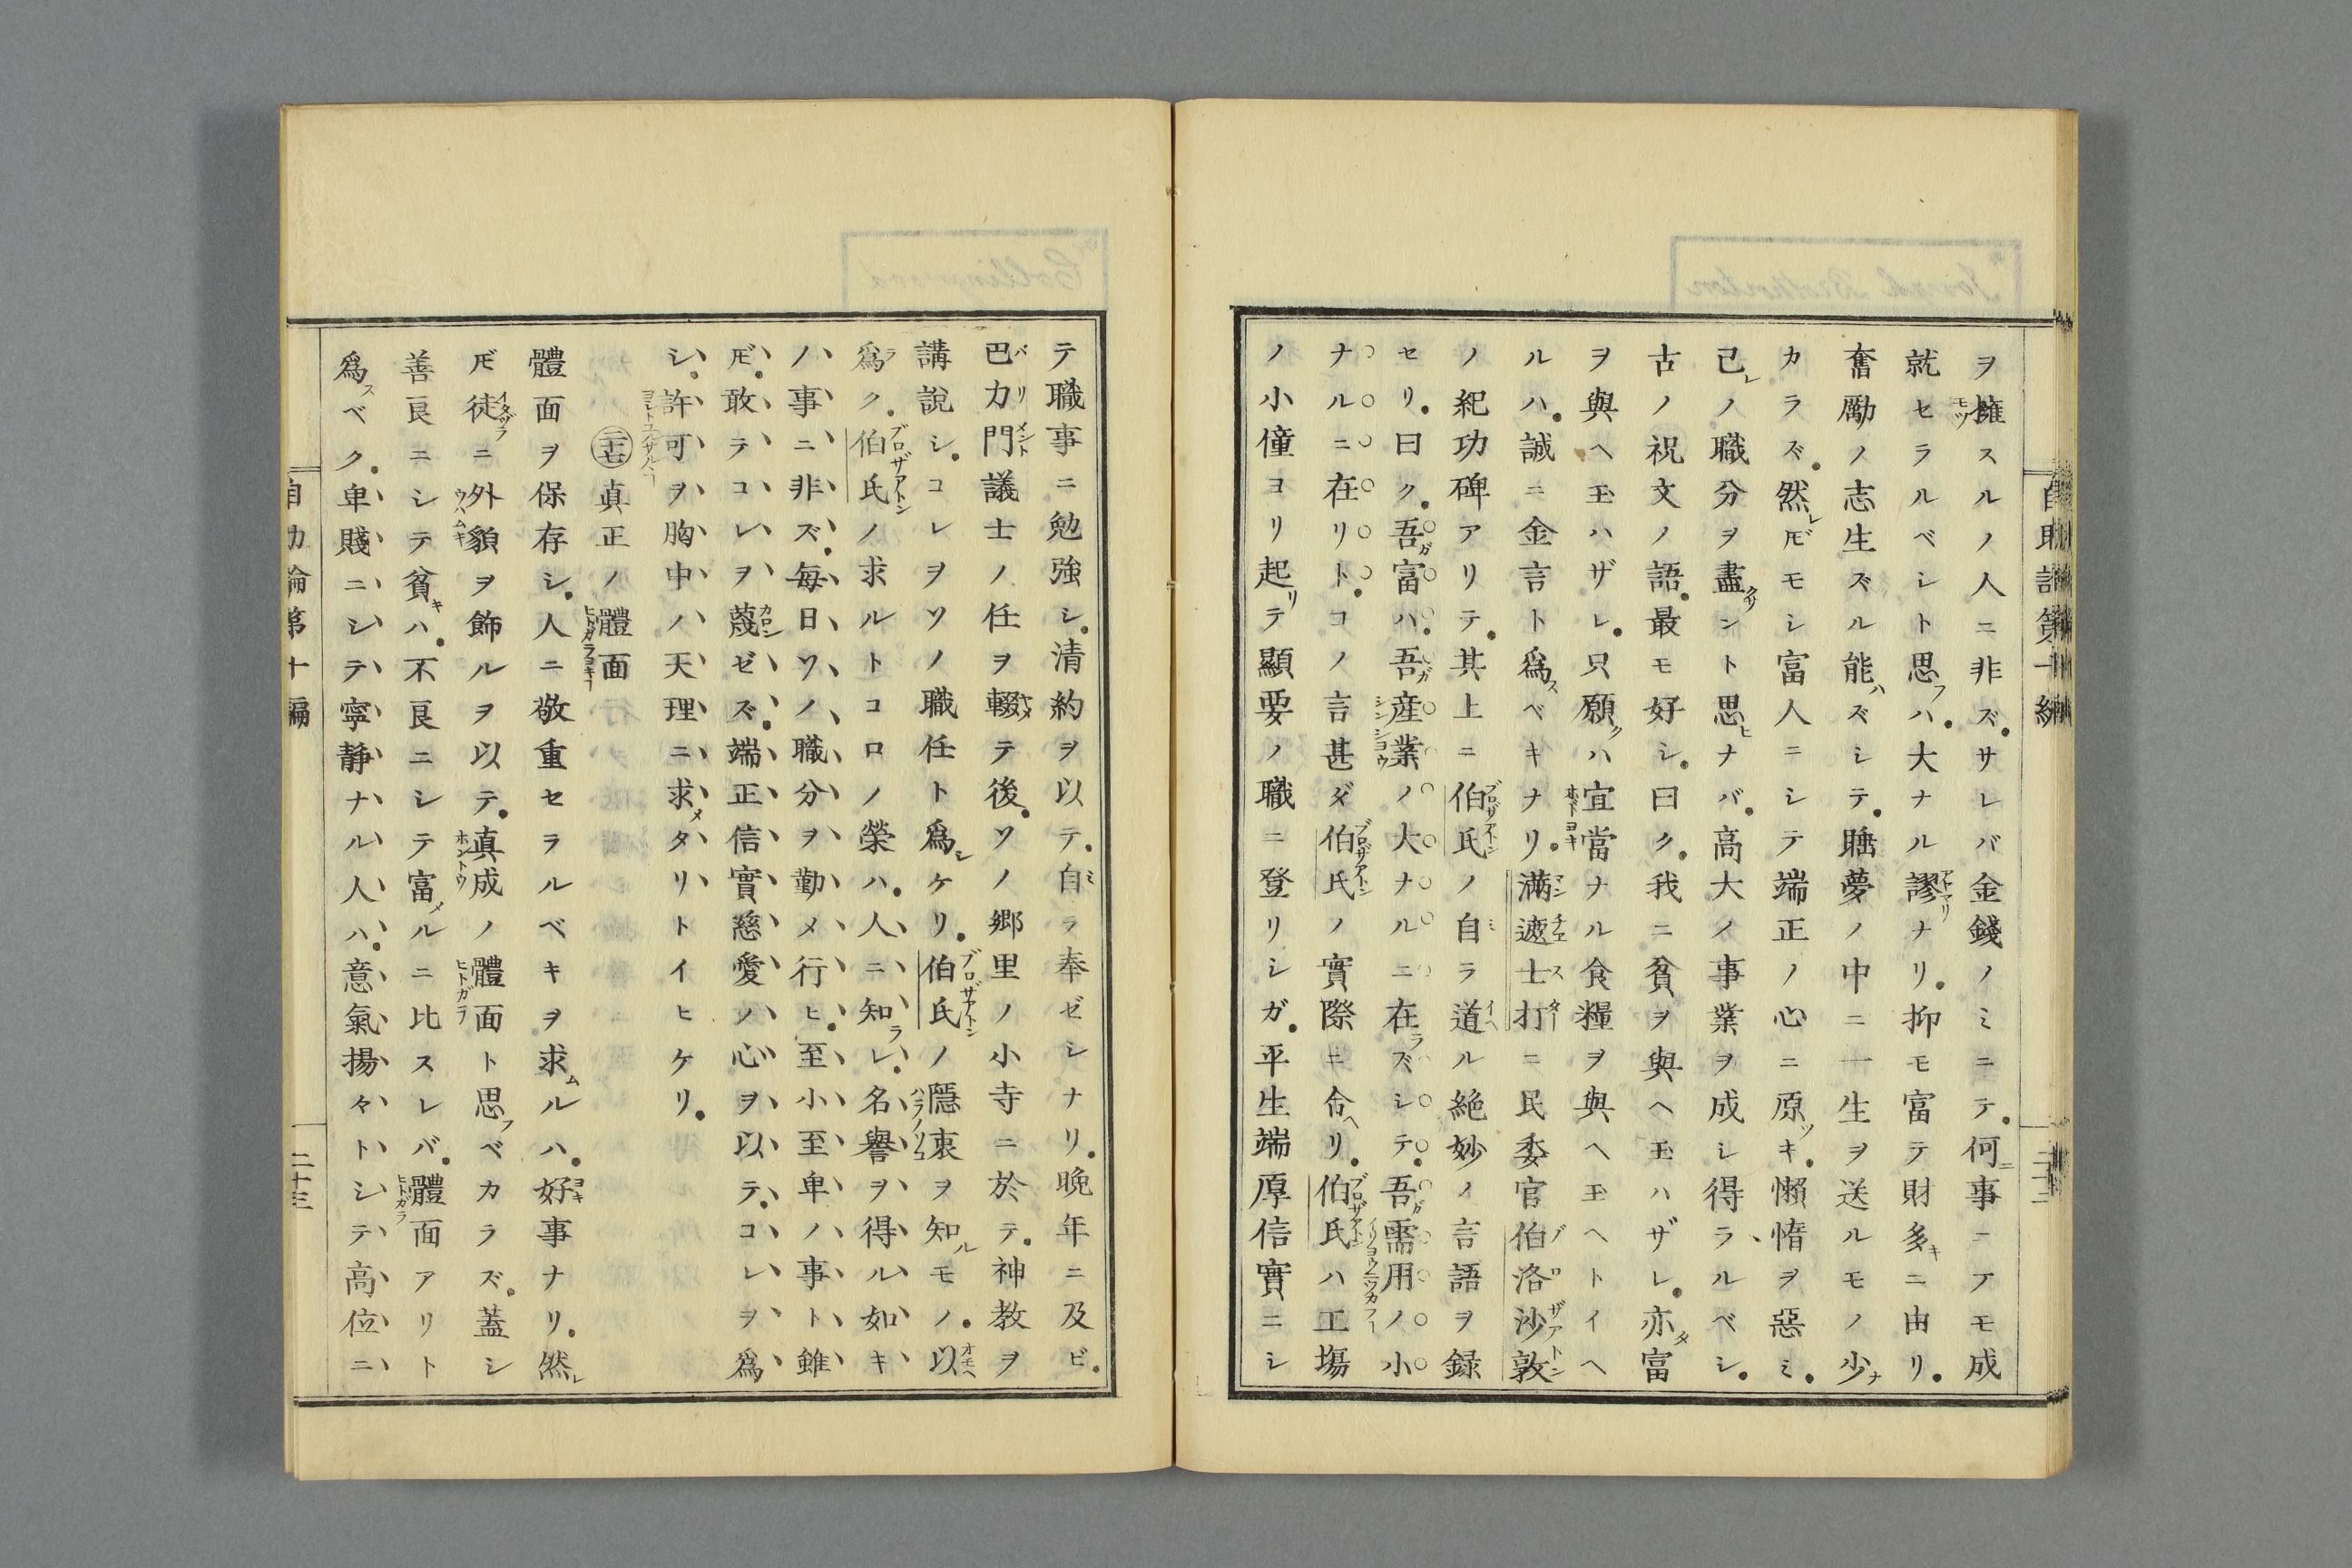 ヲ擁スルノ人ニ非ズ。サレバ金錢ノミニテ。何事ニテモ成
就セラルベシト思フハ。大ナル謬ナリ。抑モ富テ財多キニ由リ。
奮勵ノ志生ズル能ハズシテ。睡夢ノ中ニ一生ヲ送ルモノ少ナ
カラズ。然レ𪜈モシ富人ニシテ端正ノ心ニ原ツキ。懶惰ヲ惡ミ。
己レノ職分ヲ盡サント思ヒナバ。高大ノ事業ヲ成シ得ラルベシ。
古ノ祝文ノ語。最モ好シ。曰ク。我ニ貧ヲ與ヘ玉ハザレ。亦タ富
ヲ與ヘ玉ハザレ。只願クハ宜當ナル食糧ヲ與ヘ玉ヘトイヘ
ルハ。誠ニ金言ト爲スベキナリ。滿遮士打ニ民委官伯洛沙敦
ノ紀功碑アリテ。其上ニ伯氏ノ自ラ道ヘル絶妙ノ言語ヲ録
セリ。曰ク。吾ガ富ハ。吾ガ産業ノ大ナルニ在ラズシテ。吾ガ需用ノ小
ナルニ在リト。コノ言甚ダ伯氏ノ實際ニ合ヘリ。伯氏ハ工塲
ノ小僮ヨリ起リテ顯要ノ職ニ登リシガ。平生端厚信實ニシ
テ職事ニ勉強シ。清約ヲ以テ。自ラ奉ゼシナリ。晩年ニ及ビ。
巴力門議士ノ任ヲ輟テ後。ソノ郷里ノ小寺ニ於テ。神教ヲ
講說シ。コレヲソノ職任ト爲シケリ。伯氏ノ隱衷ヲ知ルモノ。以
爲ラク。伯氏ノ求ルトコロノ榮ハ。人ニ知ラレ。名譽ヲ得ル如キ
ノ事ニ非ズ。毎日ソノ職分ヲ勤メ行ヒ。至小至卑ノ事ト雖
𪜈。敢テコレヲ蔑ゼズ。端正信實慈愛ノ心ヲ以テ。コレヲ爲
シ。許可ヲ胸中ノ天理ニ求メタリトイヒケリ。
㊂十七 真正ノ體面
體面ヲ保存シ。人ニ敬重セラルベキヲ求ムルハ。好事ナリ。然レ
𪜈徒ニ外貌ヲ飾ルヲ以テ。真成ノ體面ト思フベカラズ。蓋シ
善良ニシテ貧キハ。不良ニシテ富メルニ比スレバ。體面アリト
爲スベク。卑賤ニシテ寧静ナル人ハ。意氣揚々トシテ高位ニ
自助論第十編
二十三